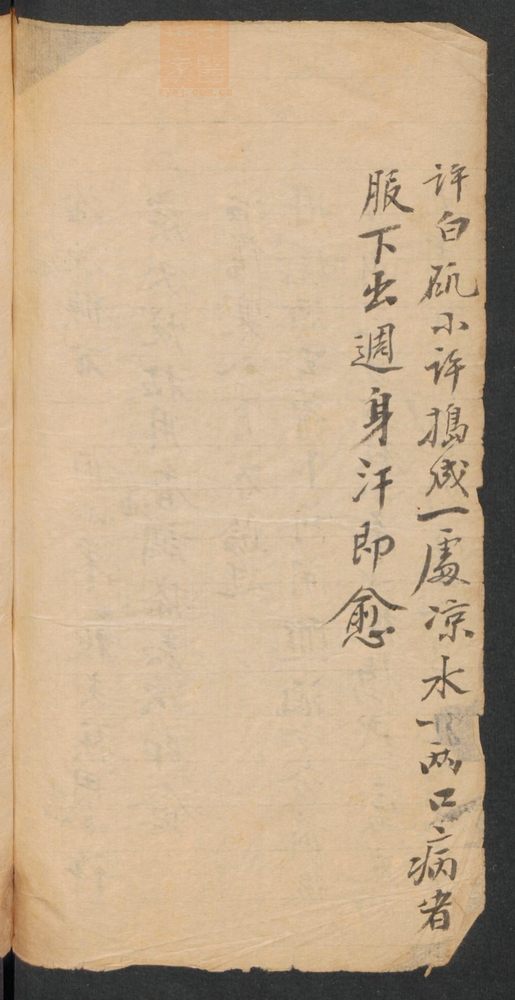 许白矾小许搗成一處凉水一两口病者
服下出週身汗即愈